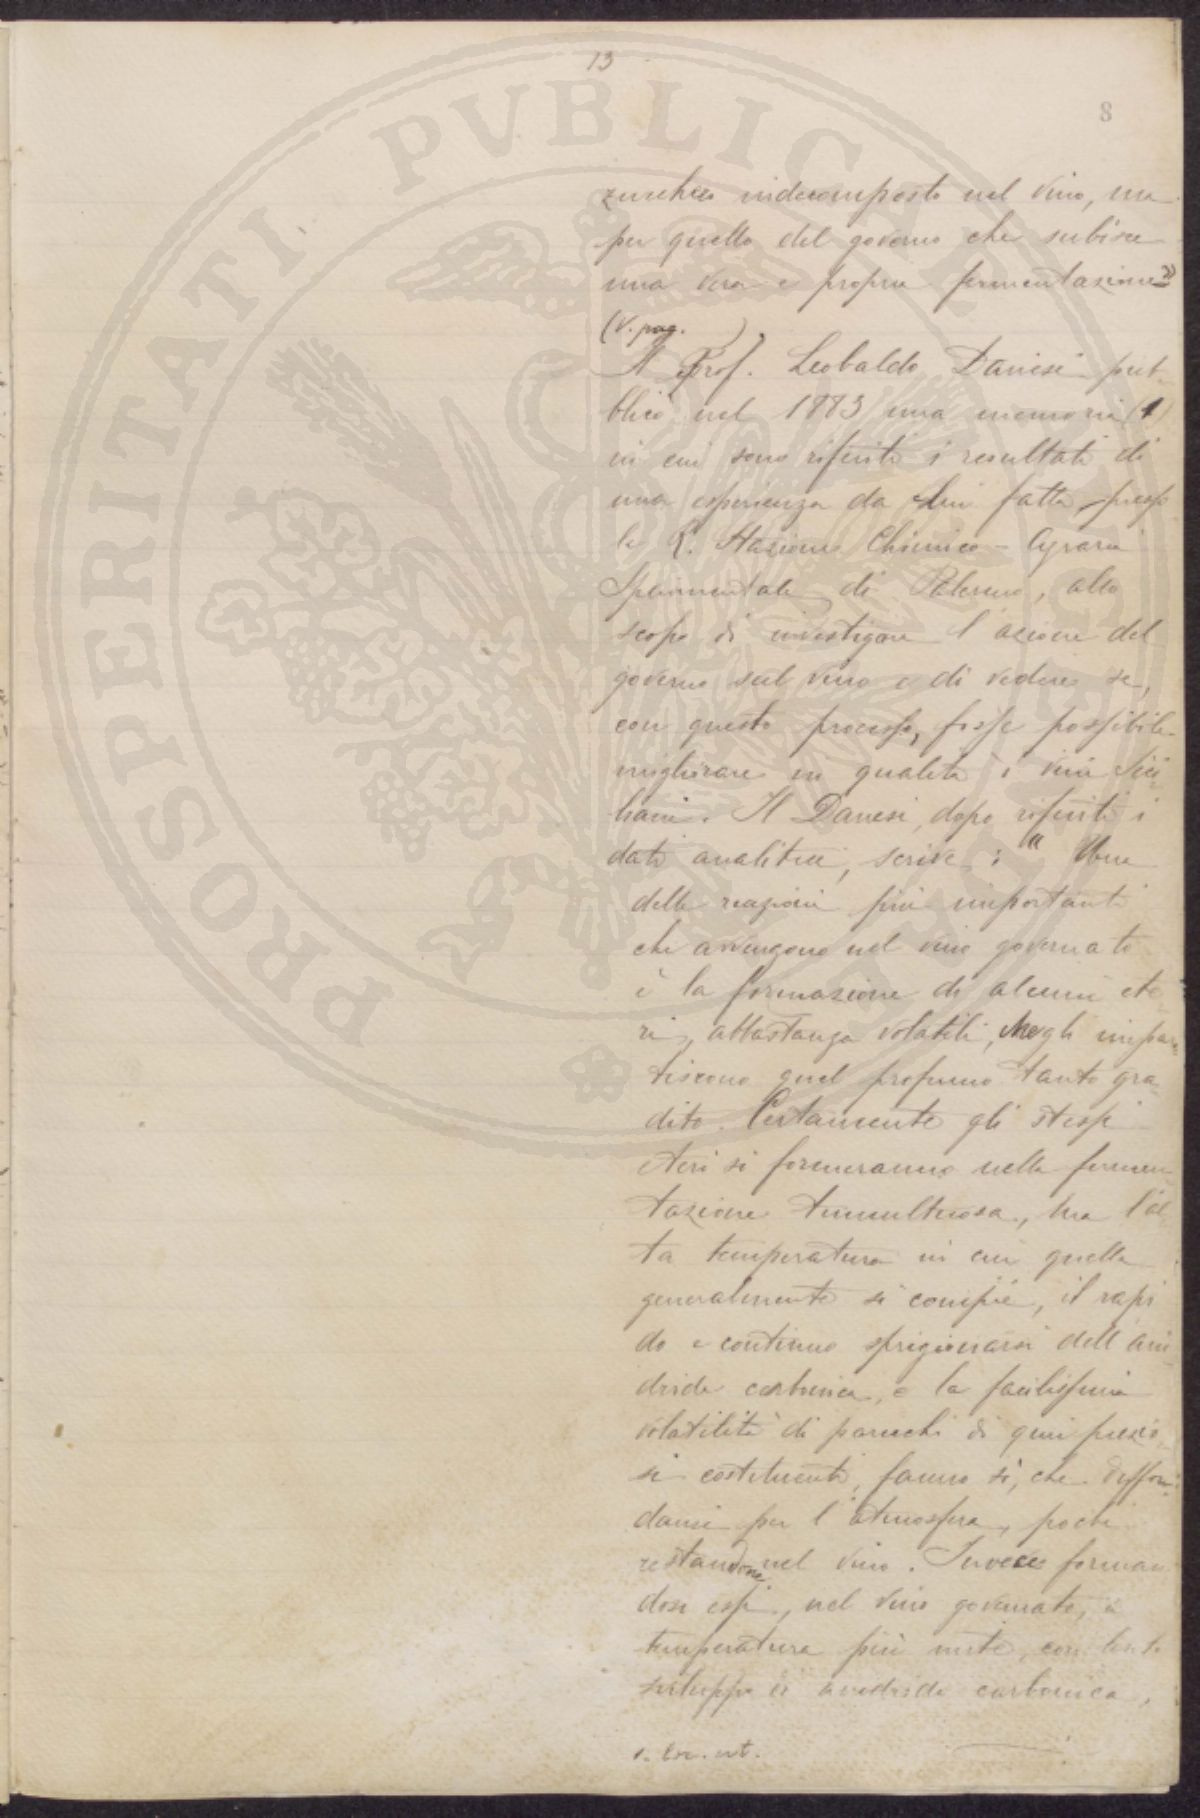 13
8
zucchero indecomposto nel vino, ma
per quello del governo che subisce
una vera e propria fermentazione"
(v. pag. ).
Il Prof. Leobaldo Danesi pub-
blicò nel 1883 una memoria (1)
in cui sono riferiti i resultati di
una esperienza da lui fatta presso
la R. Stazione Chimico-Agraria
Sperimentale di Palermo, allo
scopo di investigare l'azione del
governo sul vino e di vedere se,
con questo processo, fosse possibile
migliorare in qualità i vini Sici-
liani. Il Danesi, dopo riferiti i
dati analitici, scrive: "Una
delle reazioni più importanti
che avvengono nel vino governato
è la formazione di alcuni ete-
ri, abbastanza volatili, che gli impar-
tiscono quel profumo tanto gra-
dito. Certamente gli stessi
eteri si formeranno nella fermen-
tazione tumultuosa, ma l'al-
ta temperatura in cui quella
generalmente si compie, il rapi
do e continuo sprigionarsi dell'ani-
dride carbonica, e la facilissima
volatilità di parecchi di quei prezio-
si costituenti, fanno sì, che diffon-
dansi per l'atmosfera, pochi
restandone nel vino. Invece forman
dosi essi, nel vino governato, a
temperatura più mite, con lento
sviluppo di anidride carbonica,
1. Loc. cit.
PROSPERITATI PVBLICAE